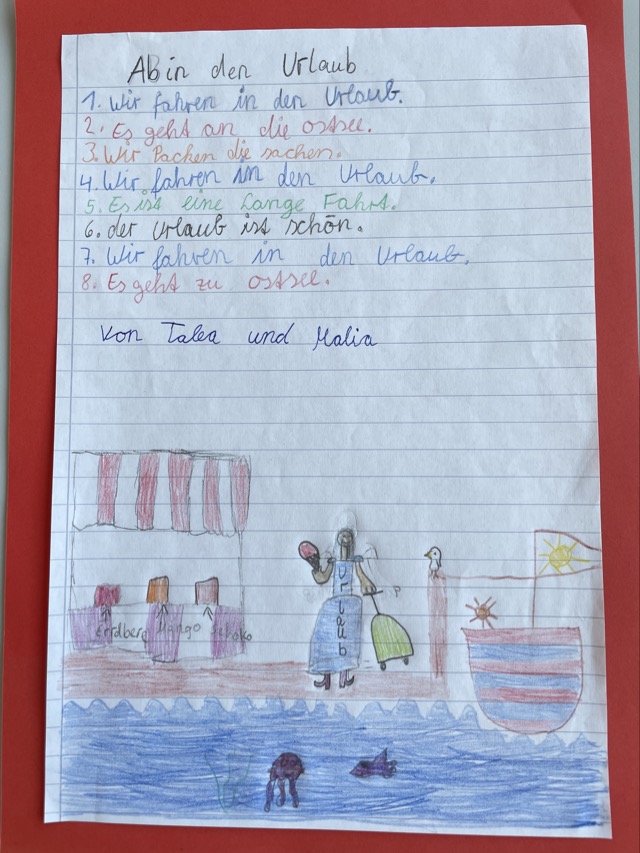 Ab in den Urlaub
1. Wir fahren in den Urlaub.
2. Es geht an die ostsee.
3. Wir Packen die sachen.
4. Wir fahren in den Urlaub.
5. Es ist eine Lange Fahrt.
6. der Urlaub ist schön.
7. Wir fahren in den Urlaub.
8. Es geht zu ostsee.
Von Talea und Malia
Erdberg Mango Schoko
Urlaub